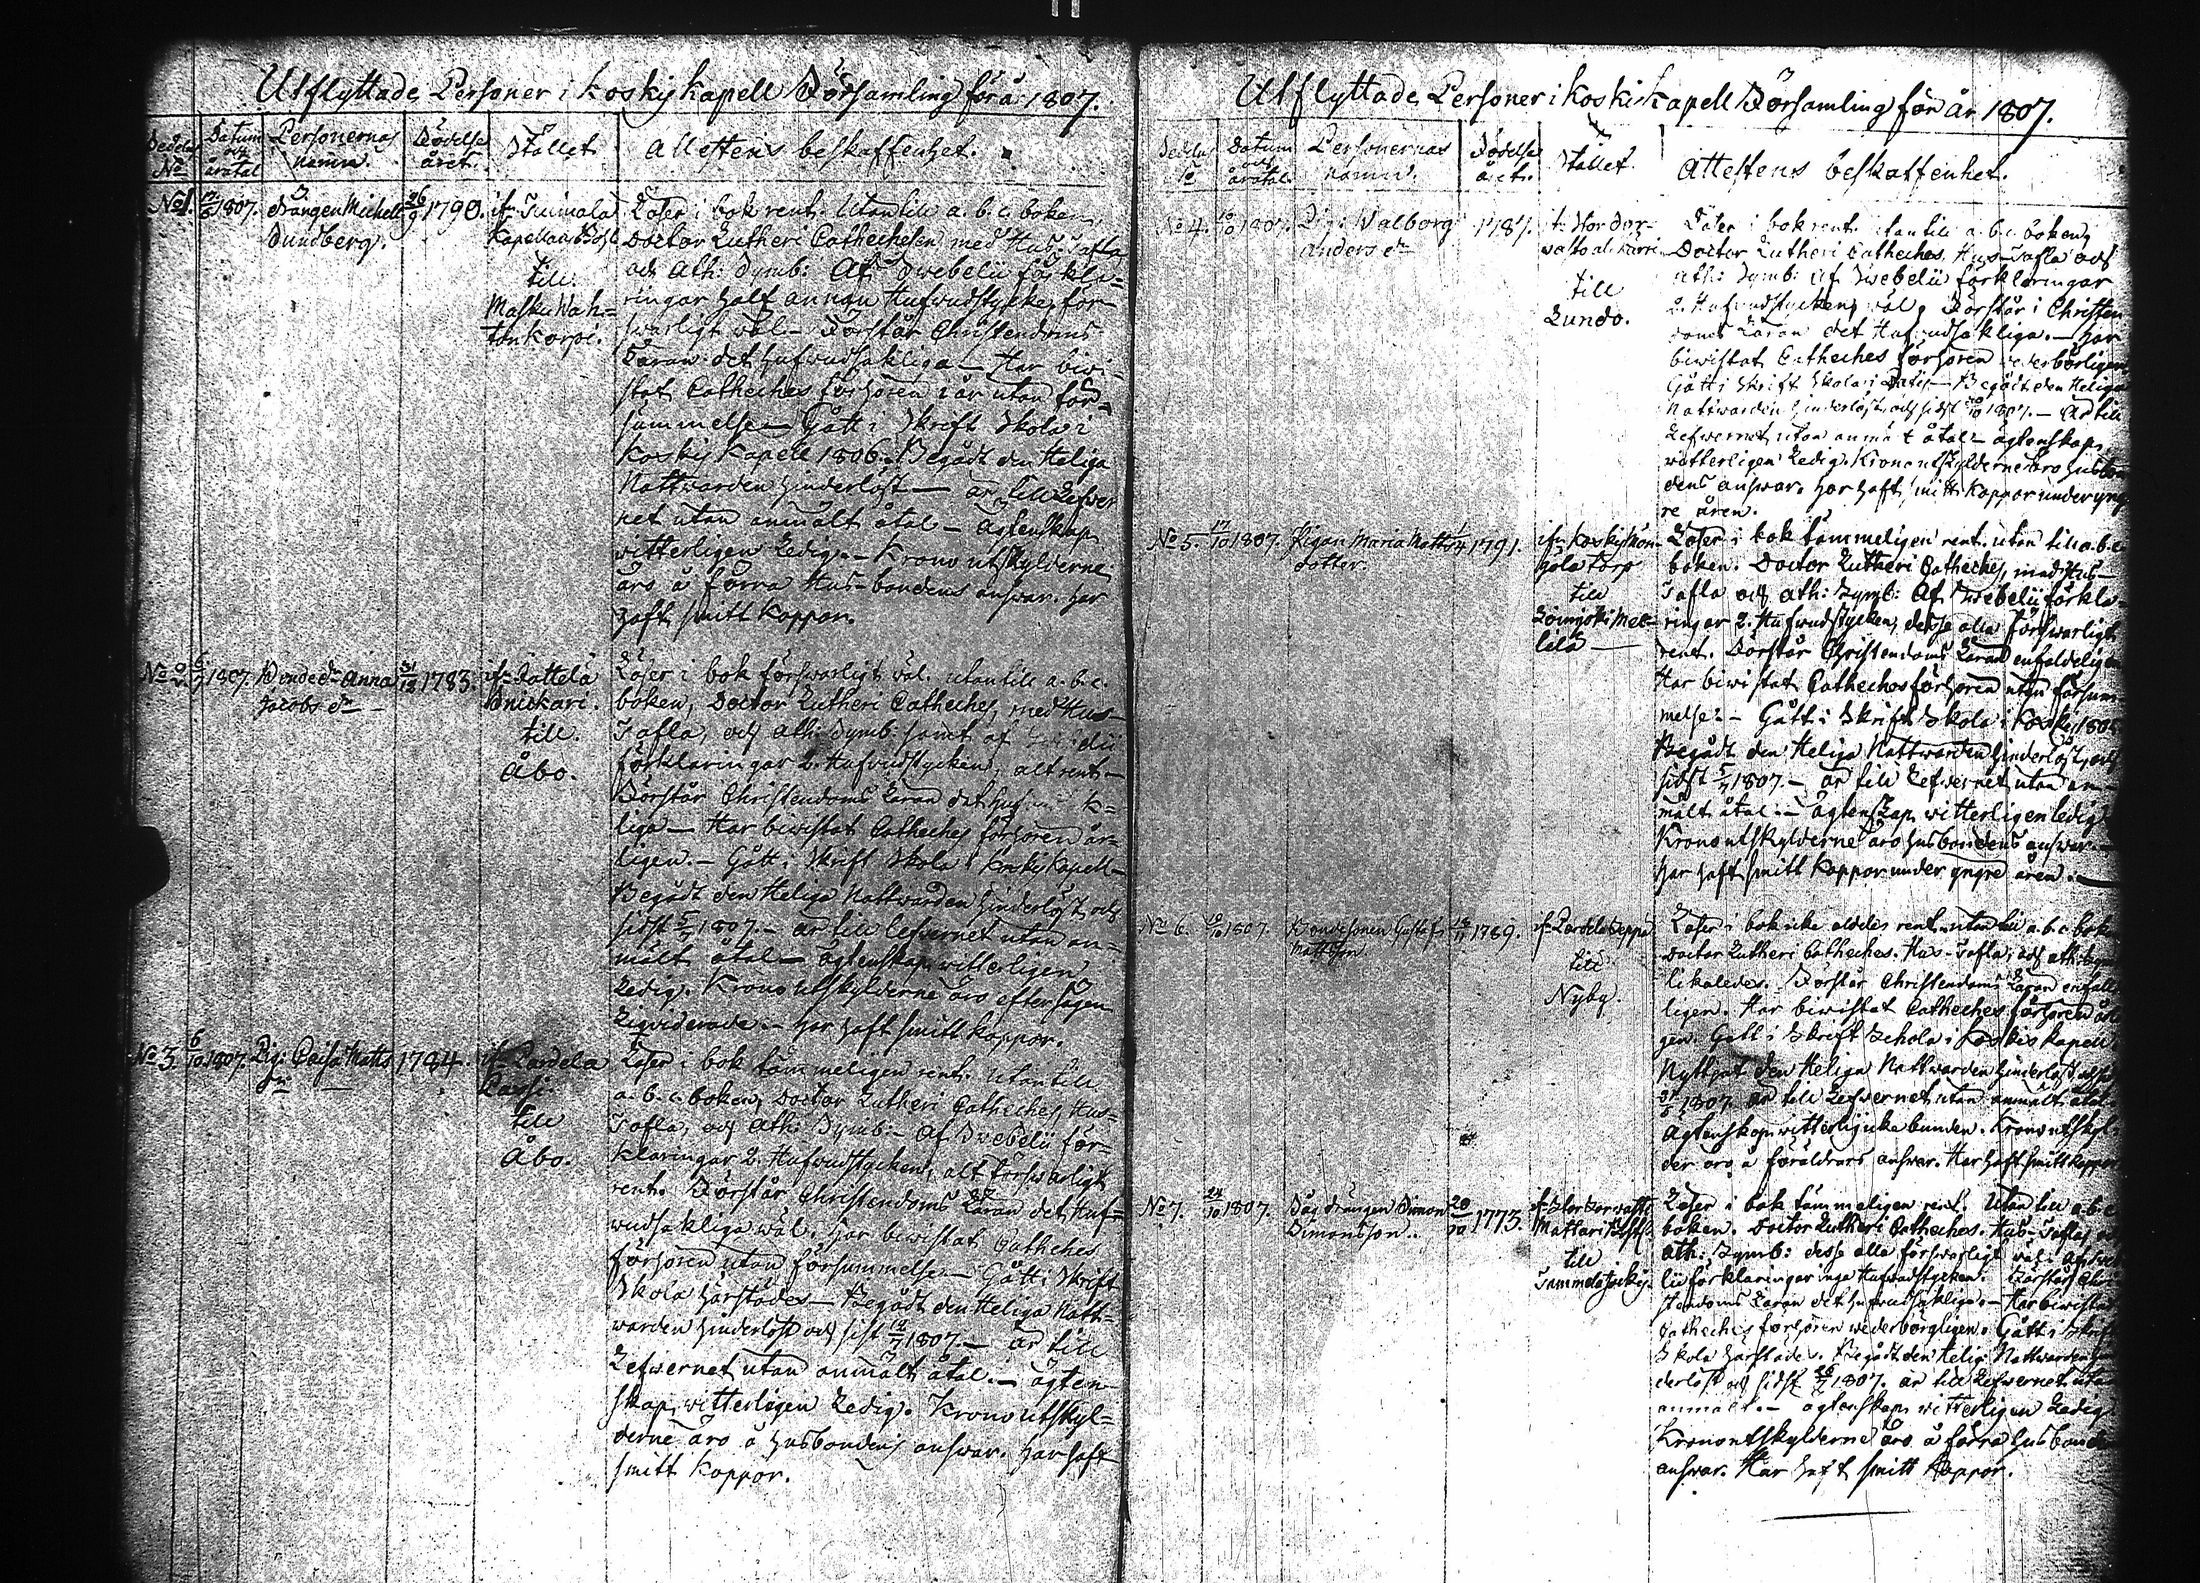 Utflyttade Personer i koskis kapell Församling för år 1807.
Sedelns No
Datum och årtatal
Personernas namn.
Födelse året.
Stället
Attestens beskaffenhet.
No 1. 1807. Drängen Michell Sundberg. 26/9 1790.
ifr. Tuimala
Kapellans Bohl
till
Masku Wah=
tonkorpi.
Läser i bok rent. Utantill a. b. c. boken,
Doctor Lutheri Cathechesen med Hus Tafla
och Ath: Symb: Af Swebelii förkla=
ringar half annan Hufwudstycke, för-
swarligt wäl. Förstår Christendoms
Läran det hufwudsakliga – Har biwi-
stat Catheches förhören i år utan för-
summelse – Gått i Skrift Skola i
Koskis Kapell 1806. Begådt den Heliga
Nattwarden hinderlöst – är till Lefwer
net utan anmält åtal – Ägtenskap
witterligen Ledig. – Krono utskylderne
äro å förra Hus-bondens answar. har
haft smitt Koppor.
No 2. 1807. Bonded:r Anna
Jacobs d:r – 31/12 1783.
ifr. Sottela
Snickari.
till.
Åbo.
Läser i bok förswarligt wäl. utantill a. b. c.
boken, Doctor Lutheri Catheches, med Hus-
Tafla, och Ath: Symb: samt af
förklaringar 2. Hufwudstycken, alt rent –
Förstår Christendoms Läran det huf k=
liga – Har biwistat Catheches förhören år-
ligen. – Gått i Skrift Skola i Koskis Kapell –
Begådt den Heliga Nattwarden hinderlöst och
sidst 5/7 1807. – är till lefwernet utan an=
mält åtal – ägtenskap witterligen
Ledig. Krono utskylderne äro efter sägen
Liqviderade. – har haft smitt koppor.
No 3. 6/10 1807. Pig: Caisa Matts
d:r 1784.
ifr. Pardela
Lassi.
till
Åbo.
Läser i bok tämmeligen rent. Utantill
a. b. c. boken, Doctor Lutheri Catheches, Hus-
Tafla, och Ath: Symb: – Af Swebelii för=
klaringar 2. Hufwudstycken, alt förswarligt
rent. Förstår Christendoms Läran det Huf=
wudsakliga wäl. har biwistat Catheches
förhören utan försummelse. – Gått i Skrift
Skola härstädes – Begådt den Heliga Natt=
warden hinderlöst och sist 12/7 1807. – är till
Lefwernet utan anmält åtal. – ägten-
skap witterligen Ledig. Krono utskyl=
derne äro å husbondens answar. har haft
smitt Koppor.
Utflyttade Personer i koskis kapell Församling för år 1807.
Sedelns No
Datum och årtatal
Personernas namn.
Födelse året.
Stället.
Attestens beskaffenhet.
No 4. 10/10 1807. Pig: Walborg
Anders d:r 1787.
ifr. Stor Sor-
wasto
till
Lundo.
Läser i bok rent. utantill a. b. c. boken,
Doctor Lutheri Catheches. Hus-Tafla och
Ath: Symb: Af Swebelii förklaringar
2. Hufwudstycken, wäl, Förstår i Christen
doms Läran det Hufwudsakliga. – har
biwistat Catheches förhören wederbörligen
Gått i Skrift Skola – Begådt den Heliga
Nattwarden hinderlöst och sidst 1807. – Är till
Lefwernet utan anmält åtal – ägtenskap
witterligen Ledig. Krono utskylderne äro husbon
dens answar. har haft smitt Koppor under yng
re åren.
No 5. 17/10 1807. Pigan Maria Matts
dotter. 1791.
ifr. Koskis Kön-
nola torp
till
Loimjoki Mel-
lilä –
Läser i bok tämmeligen rent. utan till a. b. c.
boken. Doctor Lutheri Catheches, med Hus-
Tafla och Ath: Symb: Af Swebelii förkla-
ringar 2. Hufwudstycken, desse alla förswarligt
rent. Förstår Christendoms Läran enfaldeligen
Har biwistat Cathechos förhören utan försum
melse. – Gått i Skrift Skola i Koskis 180
Begådt den Heliga Nattwarden hinderlöst, och
sidst 5/7 1807. – är till Lefwernet utan an-
mält åtal. – ägtenskap witterligen ledig
Krono utskylderne äro husbondens answar. –
har haft smitt Koppor under yngre åren. –
No 6. 1807. Bondesonen Gustaf
Mattsson 1789.
ifr. Pardela Seppä
till
Nyby.
Läser i bok icke aldeles rent. utan till a. b. c. boken
Doctor Lutheri Catheches. Hus-Tafla, och ath:
likaledes. Förstår Christendoms Läran enfalde
ligen. Har biwistat Catheches förhören årli
gen. Gått i Skrift Schola i Koskis kapell.
Nyttjat den Heliga Nattwarden hinderlöst
1807. är till Lefwernet utan anmält åtal
Ägtenskap witterlig icke bunden. Krono utskyl
der äro å föräldrars answar. Har haft smitt koppor
No 7. 24/10 1807. Båg drängen Simon
Simonsson. 28/10 1773.
ifr. Stor Sorwasto
Mattari
till
Tammela Jockis.
Läser i bok tämmeligen rent. Utan till a. b. c.
boken. Doctor Lutheri Catheches. Hus-Taflas
Ath: Symb: desse alla förswarligt wäl. Af Sweb
lii förklaringar inga Hufwudstycken. Förstår Chri
stendoms Läran det hufwudsakliga. – Har biwistat
Catheches förhören wederbörligen. Gått i Skrift
Skola härstädes. Begådt den Helig: Nattwarden hin
derlöst och sidst 1807. är till Lefwernet utan
anmält. – ägtenskap witterligen Ledig
Krono utskylderne äro å förra husbondens
answar. Har haft smitt Koppor.